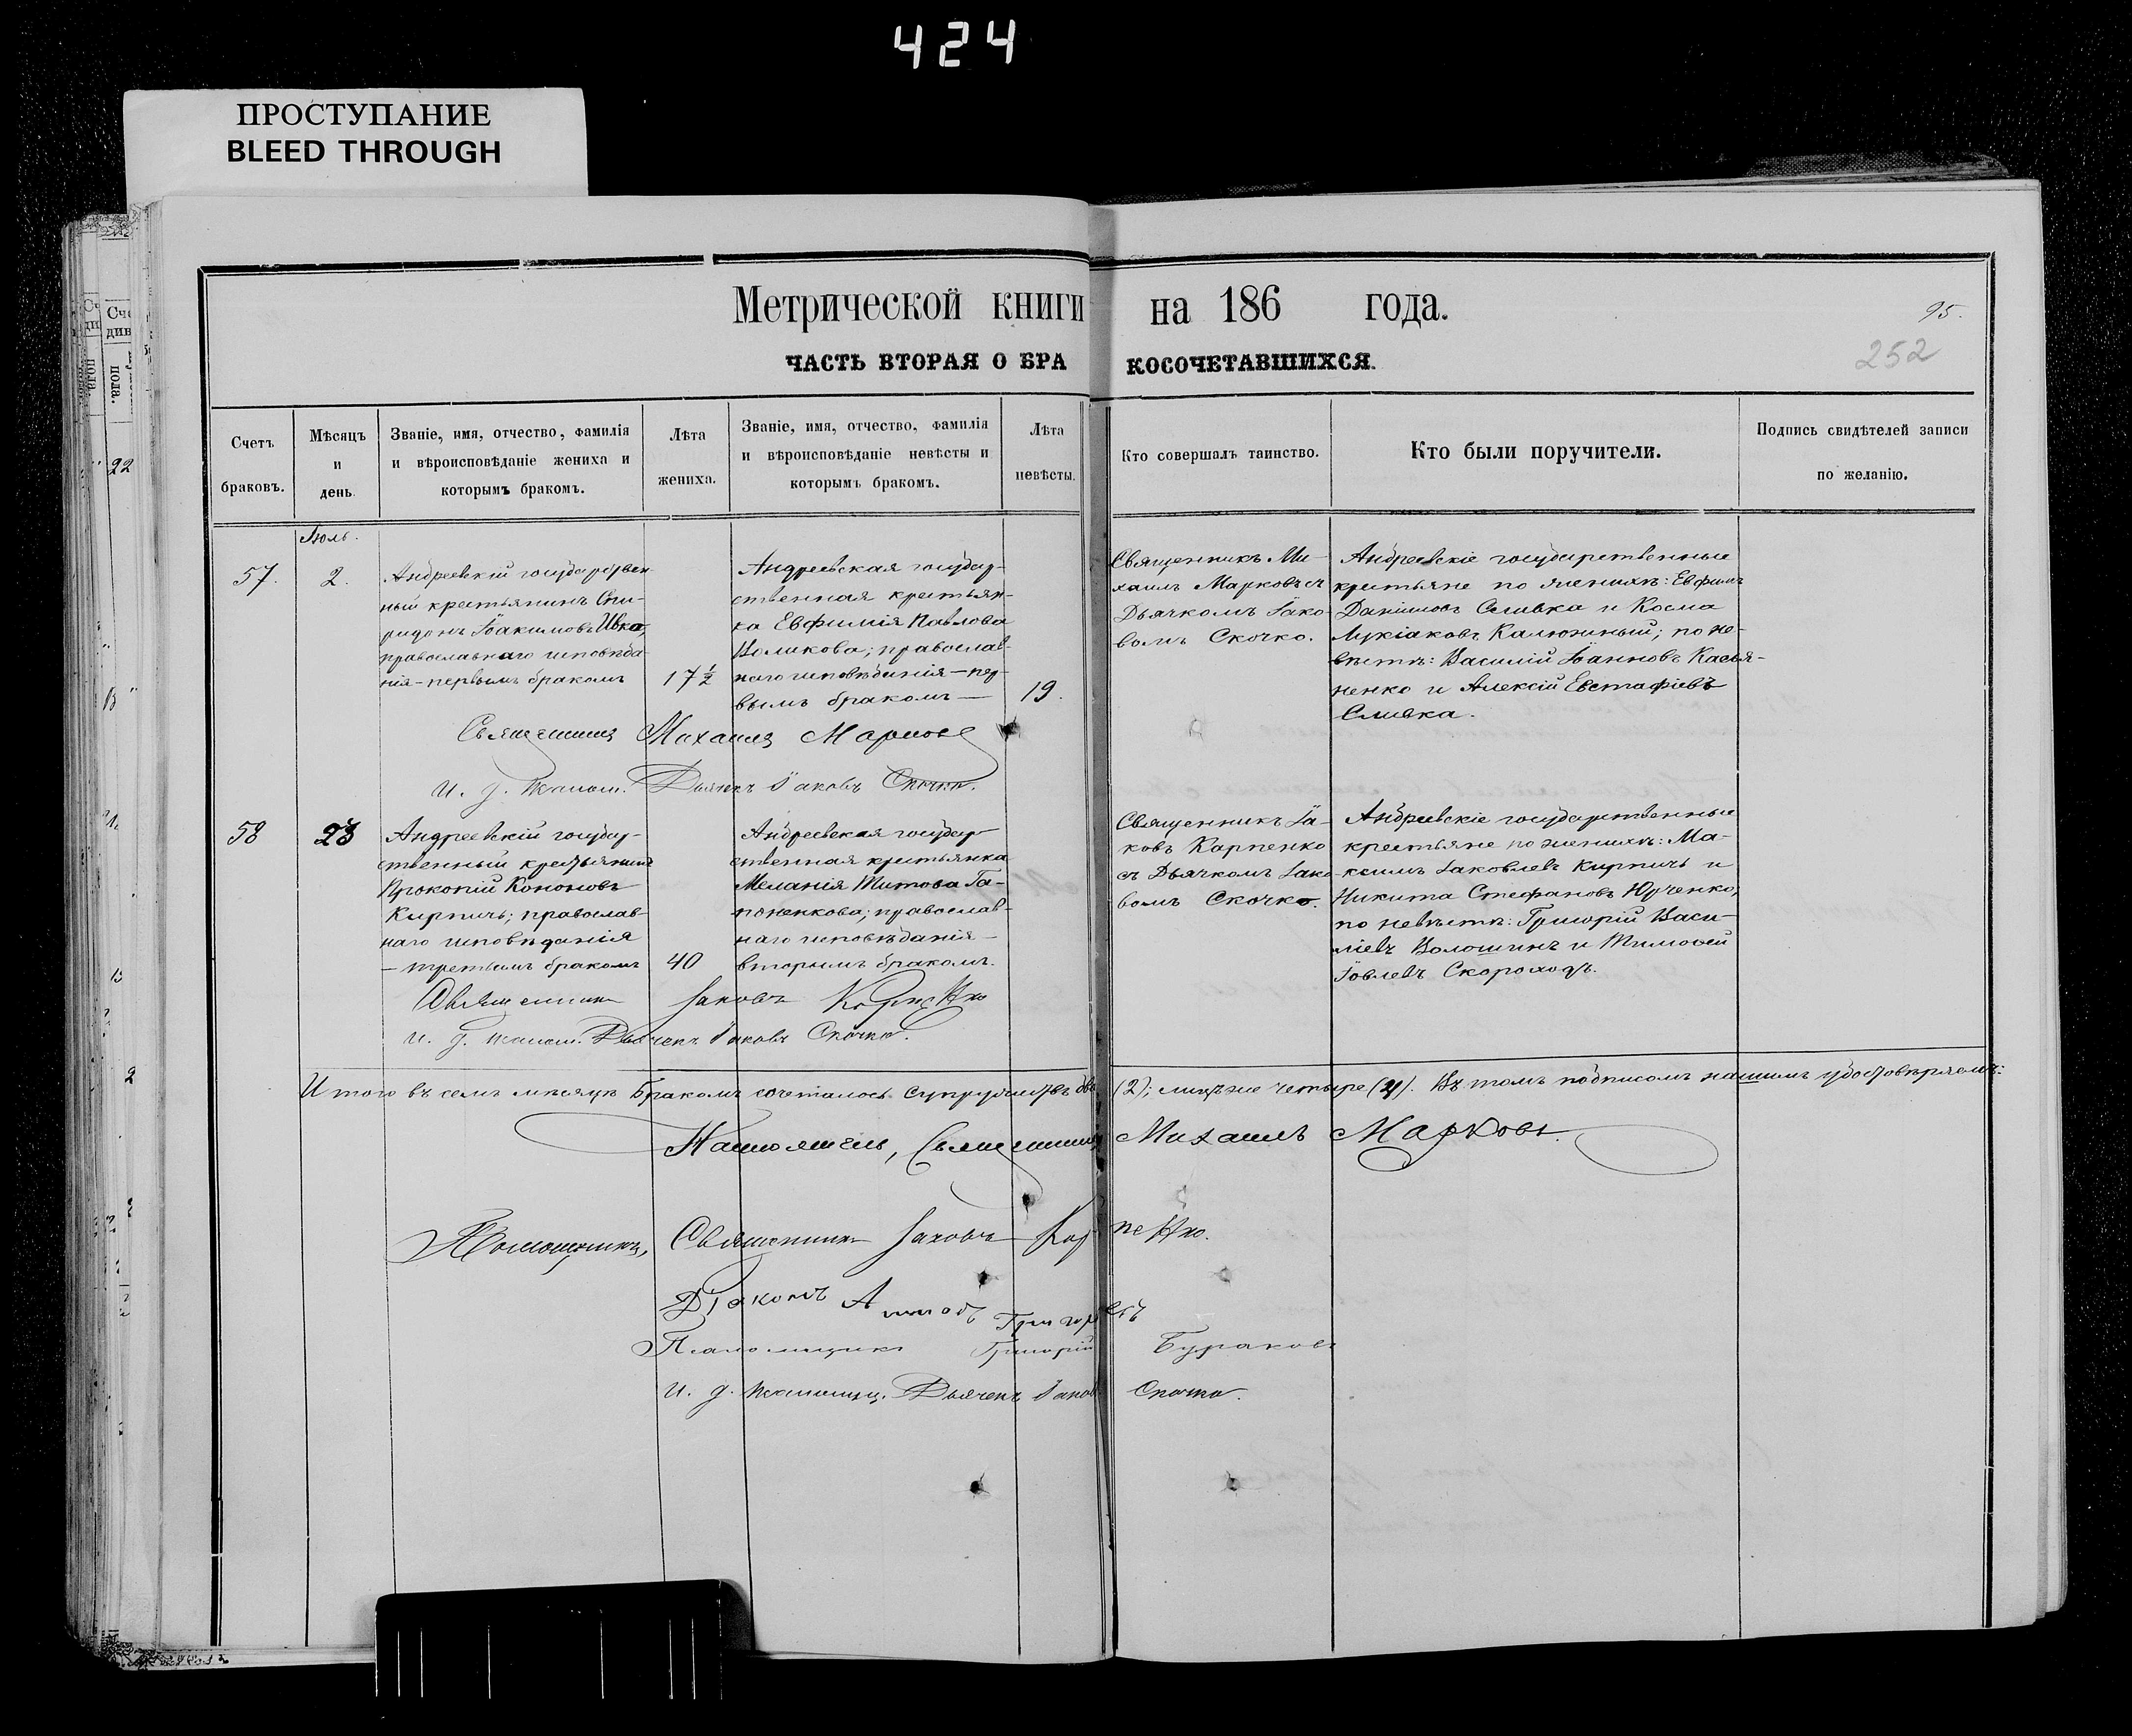 424
ПРОСТУПАНИЕ
BLEED THROUGH
Метрической книги на 186 года.
95.
ЧАСТЬ ВТОРАЯ О БРАКОСОЧЕТАВШИХСЯ.
252
Счетъ браковъ.
Мѣсяцъ и день.
Званіе, имя, отчество, фамилія
и вѣроисповѣданіе жениха и
которымъ бракомъ.
Лѣта жениха.
Званіе, имя, отчество, фамилія
и вѣроисповѣданіе невѣсты и
которымъ бракомъ.
Лѣта невѣсты.
Кто совершалъ таинство.
Кто были поручители.
Подпись свидѣтелей записи
по желанію.
Іюль.
57.
2.
Андреевскій государствен-
ный крестьянинъ Спи-
ридонъ Іоакимовъ Ивка,
православнаго исповѣда-
нія - первымъ бракомъ
17 ½
Андреевская государ-
ственная крестьян-
ка Евфимія Павлова
Воликова; православ-
наго исповѣданія - пер-
вымъ бракомъ —
19.
Священникъ Ми-
хаилъ Марковъ съ
Дьячкомъ Іако-
вомъ Скочко.
Андреевскіе государственные
крестьяне по женихѣ: Евфимъ
Даніиловъ Сливка и Косма
Лукіановъ Калюжный; по не-
вѣстѣ: Василій Іоанновъ Касья-
ненко и Алексій Евстафіевъ
Сливка.
Священникъ Михаилъ Марковъ
И. д. псалом. Дьячекъ Іаковъ Скочко.
58
23
Андреевскій государ-
ственный крестьянинъ
Прокопій Кононовъ
Кирпичъ; православ-
наго исповѣданія
- третьимъ бракомъ
40
Андреевская государ-
ственная крестьянка
Меланія Титова Га-
поненкова; православ-
наго исповѣданія -
вторымъ бракомъ.
Священникъ Іа-
ковъ Карпенко
съ Дьячкомъ Іако-
вомъ Скочко.
Андреевскіе государственные
крестьяне по женихѣ: Ма-
ксимъ Іаковлевъ Кирпичъ и
Никита Стефановъ Юрченко,
по невѣстѣ: Григорій Васи-
ліевъ Волошинъ и Тимофей
Іовлевъ Скороходъ.
Священникъ Іаковъ Карпенко
И. д. псалом. Дьячекъ Іаковъ Скочко.
Итого въ семъ мѣсяцѣ Бракомъ сочеталось супружествъ два (2); лицъ же четыре (4). Въ томъ подписомъ нашимъ удостовѣряемъ:
Настоятель, Священникъ Михаилъ Марковъ.
Помощникъ, Священникъ Іаковъ Карпенко.
Діаконъ Григорьевъ
Псаломщикъ Григорій Бураковъ
И. д. псаломщ. Дьячекъ Іаковъ Скочко.